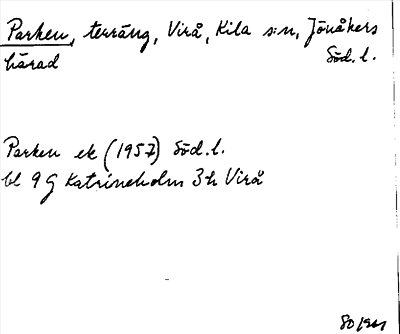 Parken, terräng, Virå, Kila s:n, Jönåkers
härad Söd. l.
Parken ek (1957) Söd. l.
bl 9 G Katrineholm 3 h Virå